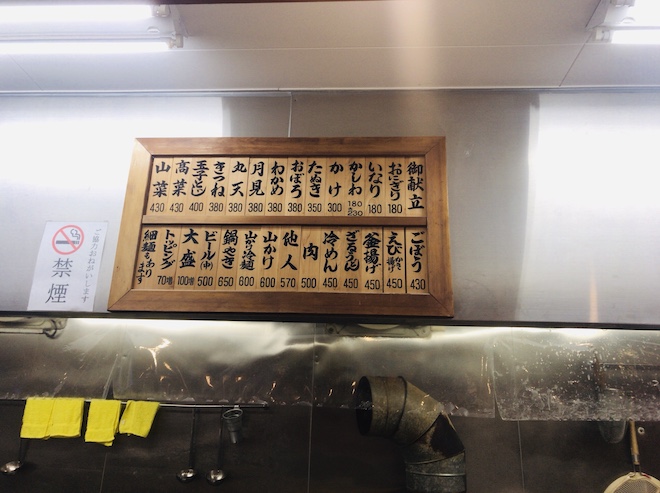 御献立
おにぎり 180
いなり 180
かしわ 180/230
かけ 300
たぬき 350
おぼろ 380
わかめ 380
月見 380
丸天 380
きつね 380
玉子とじ 400
高菜 430
山菜 430
ごぼう 430
えび 450
釜揚げ 450
ざるうどん 450
冷めん 450
肉 500
他人 570
山かけ 600
山かけ冷麺 600
鍋やき 650
ビール(中) 500
大盛 100増
トッピング 70増
細麺もあります
ご協力おねがいします
禁煙